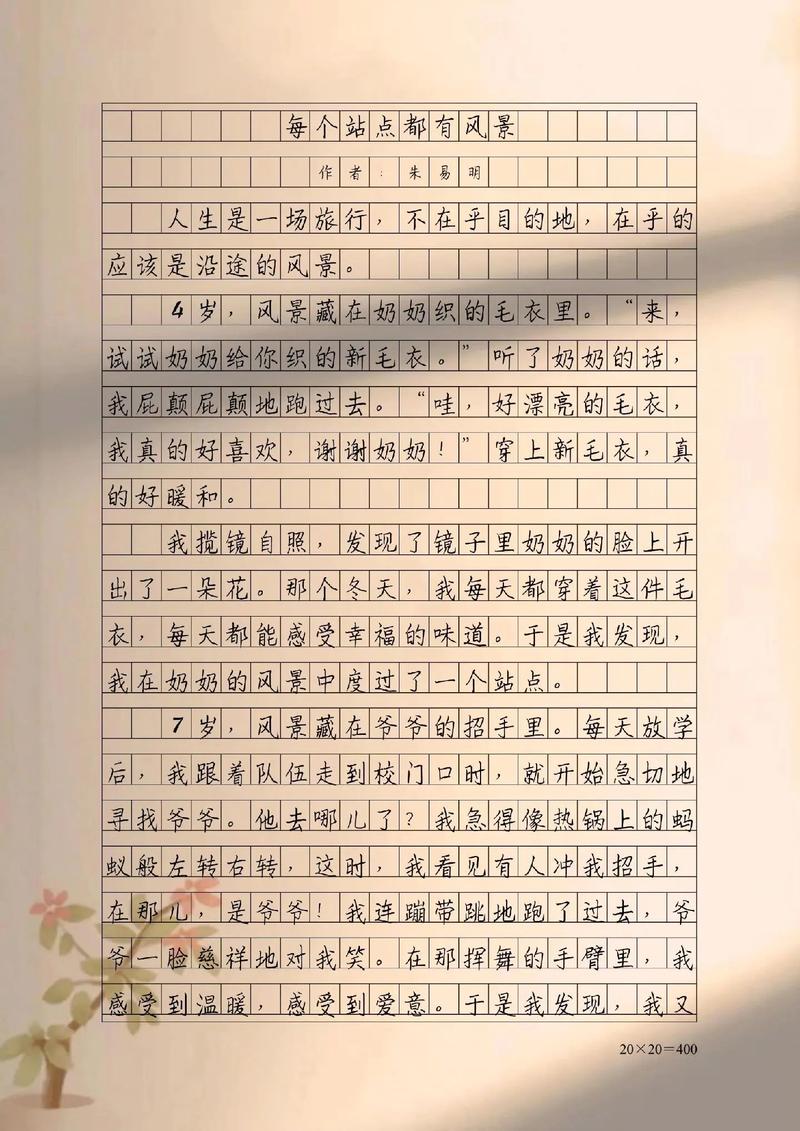 每个站点都有风景
作者：朱易明
人生是一场旅行，不在乎目的地，在乎的
应该是沿途的风景。
4岁，风景藏在奶奶织的毛衣里。“来，
试试奶奶给你织的新毛衣。”听了奶奶的话，
我屁颠屁颠地跑过去。“哇，好漂亮的毛衣，
我真的好喜欢，谢谢奶奶！”穿上新毛衣，真
的好暖和。
我揽镜自照，发现了镜子里奶奶的脸上开
出了一朵花。那个冬天，我每天都穿着这件毛
衣，每天都能感受幸福的味道。于是我发现，
我在奶奶的风景中度过了一个站点。
7岁，风景藏在爷爷的招手里。每天放学
后，我跟着队伍走到校门口时，就开始急切地
寻找爷爷。他去哪儿了？我急得像热锅上的蚂
蚁般左转右转，这时，我看见有人冲我招手，
在那儿，是爷爷！我连蹦带跳地跑了过去，爷
爷一脸慈祥地对我笑。在那挥舞的手臂里，我
感受到温暖，感受到爱意。于是我发现，我又
20×20=400